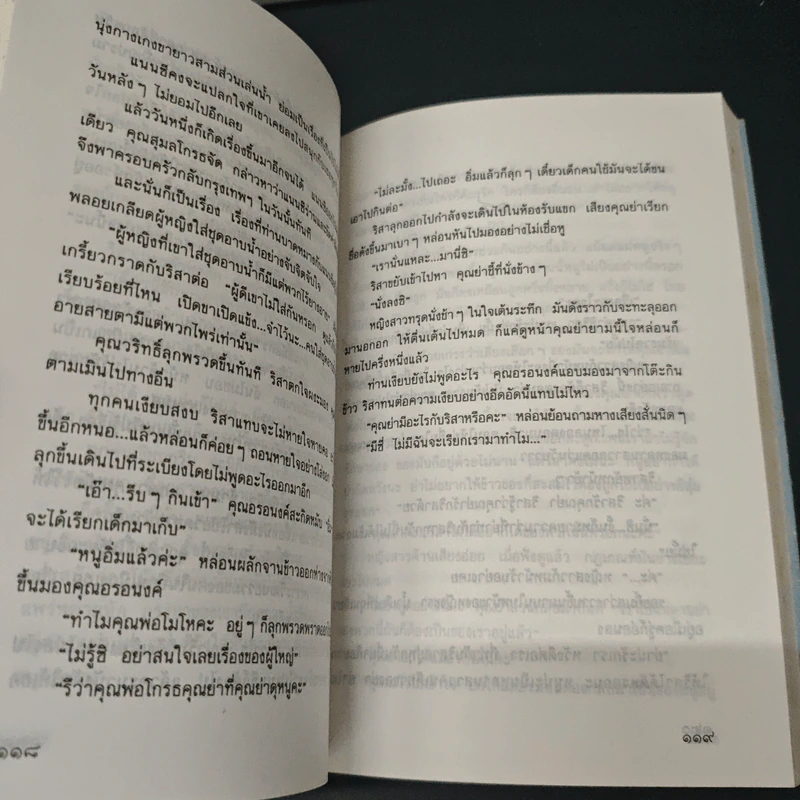 นุ่งกางเกงขายาวสามส่วนเล่นน้ำ ย่อมเป็นเรื่อง
แนนซีคงจะแปลกใจที่เขาเคยลงไปสนุก
วันหลังๆ ไม่ยอมไปอีกเลย
แล้ววันหนึ่งก็เกิดเรื่องขึ้นมาอีกจนได้
เดียว คุณสุมลโกรธจัด กล่าวหาว่าแนนซี
จึงพาครอบครัวกลับกรุงเทพฯ ในวันนั้นทันที
และนั่นก็เป็นเรื่อง เรื่องที่ท่านบาดหมาง
พลอยเกลียดผู้หญิงใส่ชุดอาบน้ำอย่างจับจิตจับใจ
“ผู้หญิงที่เขาใส่ชุดอาบน้ำก็มีแต่พวกไร้ยางอาย”
เกรี้ยวกราดกับริสาต่อ “ผู้ดีเขาไม่ใส่กันหรอก
เรียบร้อยที่ไหน เปิดขาเปิดแข้ง...จำไว้นะ...คนใส่ชุด
อายสายตามีแต่พวกไพร่เท่านั้น”
คุณวริทธิ์ลุกพรวดขึ้นทันที ริสาตกใจผงะมอง
ตามเมินไปทางอื่น
ทุกคนเงียบสงบ ริสาแทบจะไม่หายใจหายคอ
ขึ้นอีกหนอ...แล้วหล่อนก็ค่อยๆ ถอนหายใจอย่างโล่งอก
ลุกขึ้นเดินไปที่ระเบียงโดยไม่พูดอะไรออกมาอีก
“เอ๊า...รีบๆ กินเข้า” คุณอรอนงค์สะกิดหมับ
จะได้เรียกเด็กมาเก็บ”
“หนูอิ่มแล้วค่ะ” หล่อนผลักจานข้าวออกห่าง
ขึ้นมองคุณอรอนงค์
“ทำไมคุณพ่อโมโหคะ อยู่ๆ ก็ลุกพรวดพราด
“ไม่รู้ซิ อย่าสนใจเลยเรื่องของผู้ใหญ่”
“รึว่าคุณพ่อโกรธคุณย่าที่คุณย่าดุหนูคะ”
๑๑๘
“ไม่ละมั้ง...ไปเถอะ อิ่มแล้วก็ลุกๆ เดี๋ยวเด็กคนใช้มันจะได้ขน
เอาไปกินต่อ”
ริสาลุกออกไปกำลังจะเดินไปในห้องรับแขก เสียงคุณย่าเรียก
ชื่อดังขึ้นมาเบาๆ หล่อนหันไปมองอย่างไม่เชื่อหู
“เรานั่นแหละ...มานี่ซิ”
ริสาขยับเข้าไปหา คุณย่าชี้ที่นั่งข้างๆ
“นั่งลงซิ”
หญิงสาวทรุดนั่งช้าๆ ในใจเต้นระทึก มันดังราวกับจะทะลุออก
มานอกอก ให้ตื่นเต้นไปหมด ก็แค่ดูหน้าคุณย่ายามนี้ใจหล่อนก็
หายไปครึ่งหนึ่งแล้ว
ท่านเงียบยังไม่พูดอะไร คุณอรอนงค์แอบมองมาจากโต๊ะกิน
ข้าว ริสาทนต่อความเงียบอย่างอึดอัดนี้แทบไม่ไหว
“คุณย่ามีอะไรกับริสาหรือคะ” หล่อนย้อนถามหางเสียงสั่นนิดๆ
“มีซี่ ไม่มีฉันจะเรียกเรามาทำไม...”
๑๑๙